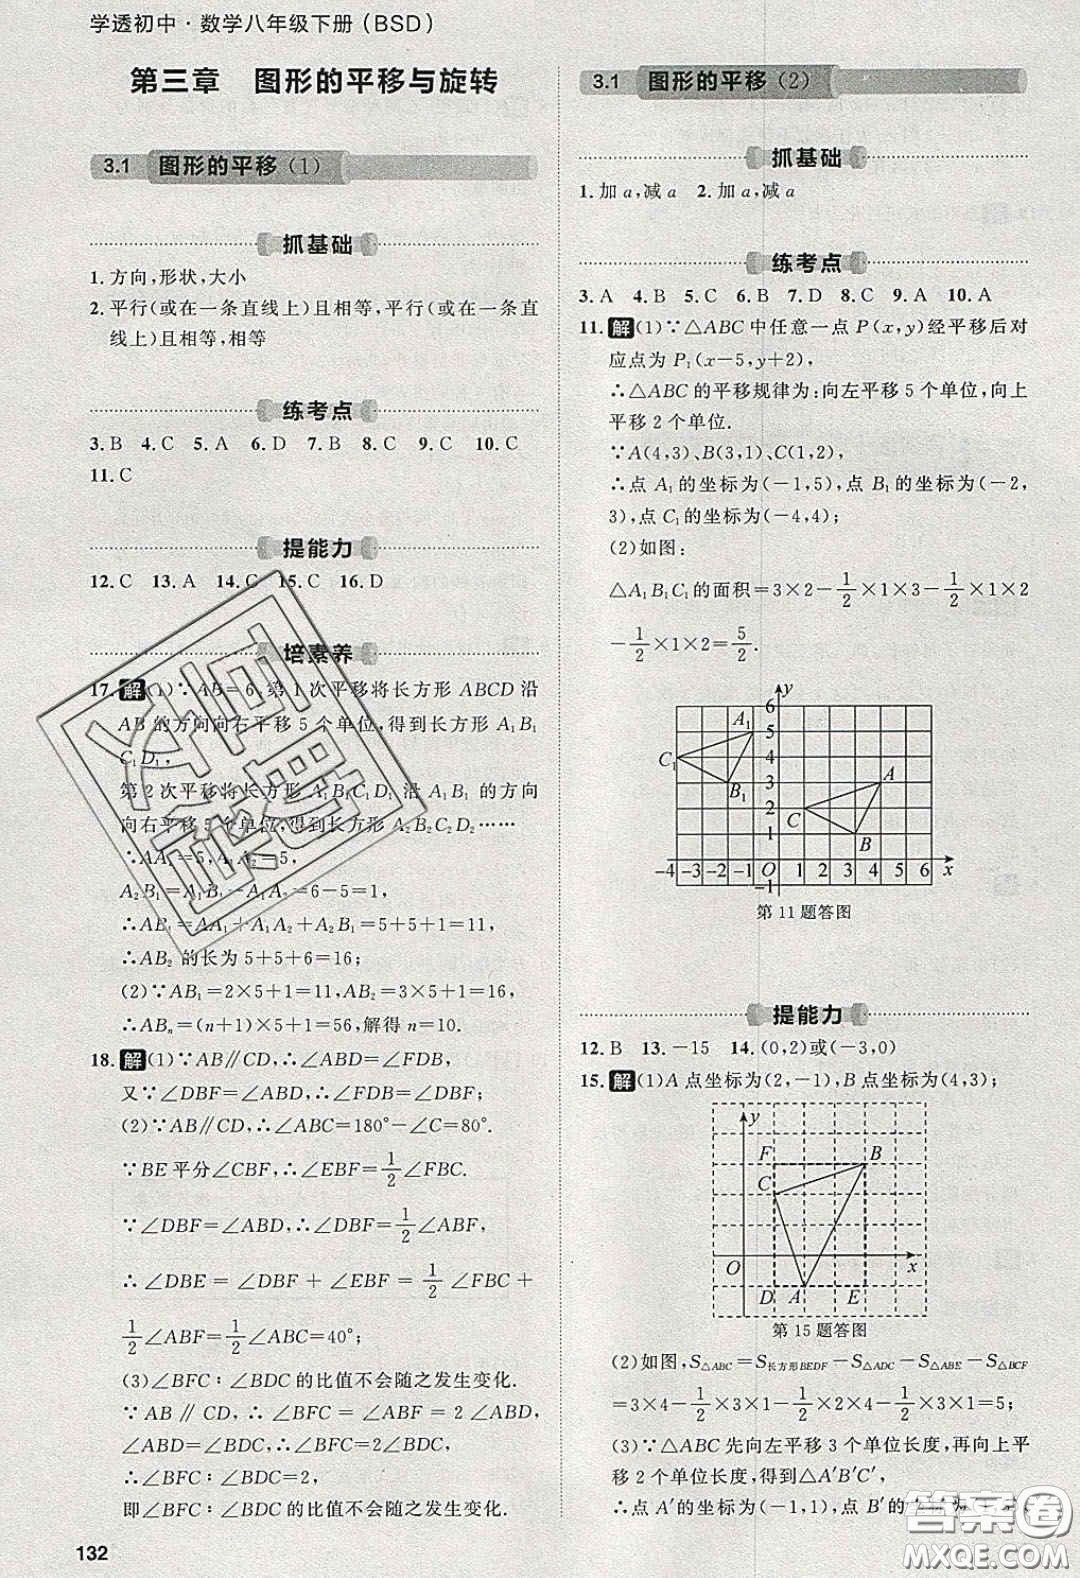 学透初中·数学八年级下册(BSD)
第三章 图形的平移与旋转
3.1 图形的平移(1)
抓基础
1.方向,形状,大小
2.平行(或在一条直线上)且相等,平行(或在一条直
线上)且相等,相等
练考点
3.B 4.C 5.A 6.D 7.B 8.C 9.C 10.C
11.C
提能力
12.C 13.A 14.C 15.C 16.D
培素养
17.解(1)∵AB=6,第1次平移将长方形ABCD沿
AB的方向向右平移5个单位,得到长方形A₁B₁
C₁D₁,
第2次平移将长方形A₁B₁C₁D₁沿A₁B₁的方向
向右平移5个单位,得到长方形A₂B₂C₂D₂……
∴AA₁=5,A₁A₂=5,
A₂B₁=A₁B₁-A₁A₂=6-5=1,
∴AB₁=AA₁+A₁A₂+A₂B₁=5+5+1=11,
∴AB₂的长为5+5+6=16;
(2)∵AB₁=2×5+1=11,AB₂=3×5+1=16,
∴ABₙ=(n+1)×5+1=56,解得n=10.
18.解(1)∵AB∥CD,∴∠ABD=∠FDB,
又∵∠DBF=∠ABD,∴∠DBF=∠FDB;
(2)∵AB∥CD,∴∠ABC=180°-∠C=80°.
∵BE平分∠CBF,∴∠EBF=1/2∠FBC.
∵∠DBF=∠ABD,∴∠DBF=1/2∠ABF,
∴∠DBE=∠DBF+∠EBF=1/2∠FBC+
1/2∠ABF=1/2∠ABC=40°;
(3)∠BFC:∠BDC的比值不会随之发生变化.
∵AB∥CD,∴∠BFC=∠ABF=2∠ABD,
∠ABD=∠BDC,∴∠BFC=2∠BDC,
∴∠BFC:∠BDC=2:1,
即∠BFC:∠BDC的比值不会随之发生变化.
132
3.1 图形的平移(2)
抓基础
1.加a,减a 2.加a,减a
练考点
3.A 4.B 5.C 6.B 7.D 8.C 9.A 10.A
11.解(1)∵△ABC中任意一点P(x,y)经平移后对
应点为P₁(x-5,y+2),
∴△ABC的平移规律为:向左平移5个单位,向上
平移2个单位.
∵A(4,3)、B(3,1)、C(1,2),
∴点A₁的坐标为(-1,5),点B₁的坐标为(-2,
3),点C₁的坐标为(-4,4);
(2)如图:
△A₁B₁C₁的面积=3×2-1/2×1×3-1/2×1×2
-1/2×1×2=5/2.
y
6
5
4
3
2
1
-4 -3 -2 -1 O 1 2 3 4 5 6 x
-1
A₁
B₁
C₁
A
B
C
第11题答图
提能力
12.B 13.-15 14.(0,2)或(-3,0)
15.解(1)A点坐标为(2,-1),B点坐标为(4,3);
y
F B
C
O x
D A E
第15题答图
(2)如图,S△ABC=S长方形BEDF-S△ADC-S△ABE-S△BCF
=3×4-1/2×3×1-1/2×2×4-1/2×3×1=5;
(3)∵△ABC先向左平移3个单位长度,再向上平
移2个单位长度,得到△A′B′C′,
∴点A′的坐标为(-1,1),点B′的坐标为(1,5),
答案圈
MXQE.COM